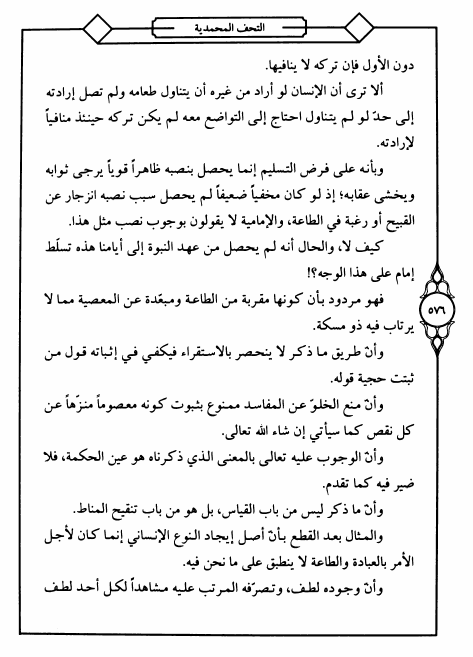 التحف المحمدية
دون الأول فإن تركه لا ينافيها.
ألا ترى أن الإنسان لو أراد من غيره أن يتناول طعامه ولم تصل إرادته
إلى حدّ لو لم يتناول احتاج إلى التواضع معه لم يكن تركه حينئذ منافياً
لإرادته.
وبأنه على فرض التسليم إنما يحصل بنصبه ظاهراً قوياً يرجى ثوابه
ويخشى عقابه؛ إذ لو كان مخفياً ضعيفاً لم يحصل سبب نصبه انزجار عن
القبيح أو رغبة في الطاعة، والإمامية لا يقولون بوجوب نصب مثل هذا.
كيف لا، والحال أنه لم يحصل من عهد النبوة إلى أيامنا هذه تسلّط
إمام على هذا الوجه؟!
فهو مردود بأن كونها مقربة من الطاعة ومبعّدة عن المعصية مما لا
يرتاب فيه ذو مسكة.
٥٧٦
وأنّ طريق ما ذكر لا ينحصر بالاستقراء فيكفي في إثباته قول من
ثبتت حجية قوله.
وأنّ منع الخلوّ عن المفاسد ممنوع بثبوت كونه معصوماً منزّهاً عن
كل نقص كما سيأتي إن شاء الله تعالى.
وأنّ الوجوب عليه تعالى بالمعنى الذي ذكرناه هو عين الحكمة، فلا
ضير فيه كما تقدم.
وأنّ ما ذكر ليس من باب القياس، بل هو من باب تنقيح المناط.
والمثال بعد القطع بأنّ أصل إيجاد النوع الإنساني إنما كان لأجل
الأمر بالعبادة والطاعة لا ينطبق على ما نحن فيه.
وأنّ وجوده لطف، وتصرّفه المرتب عليه مشاهداً لكل أحد لطف